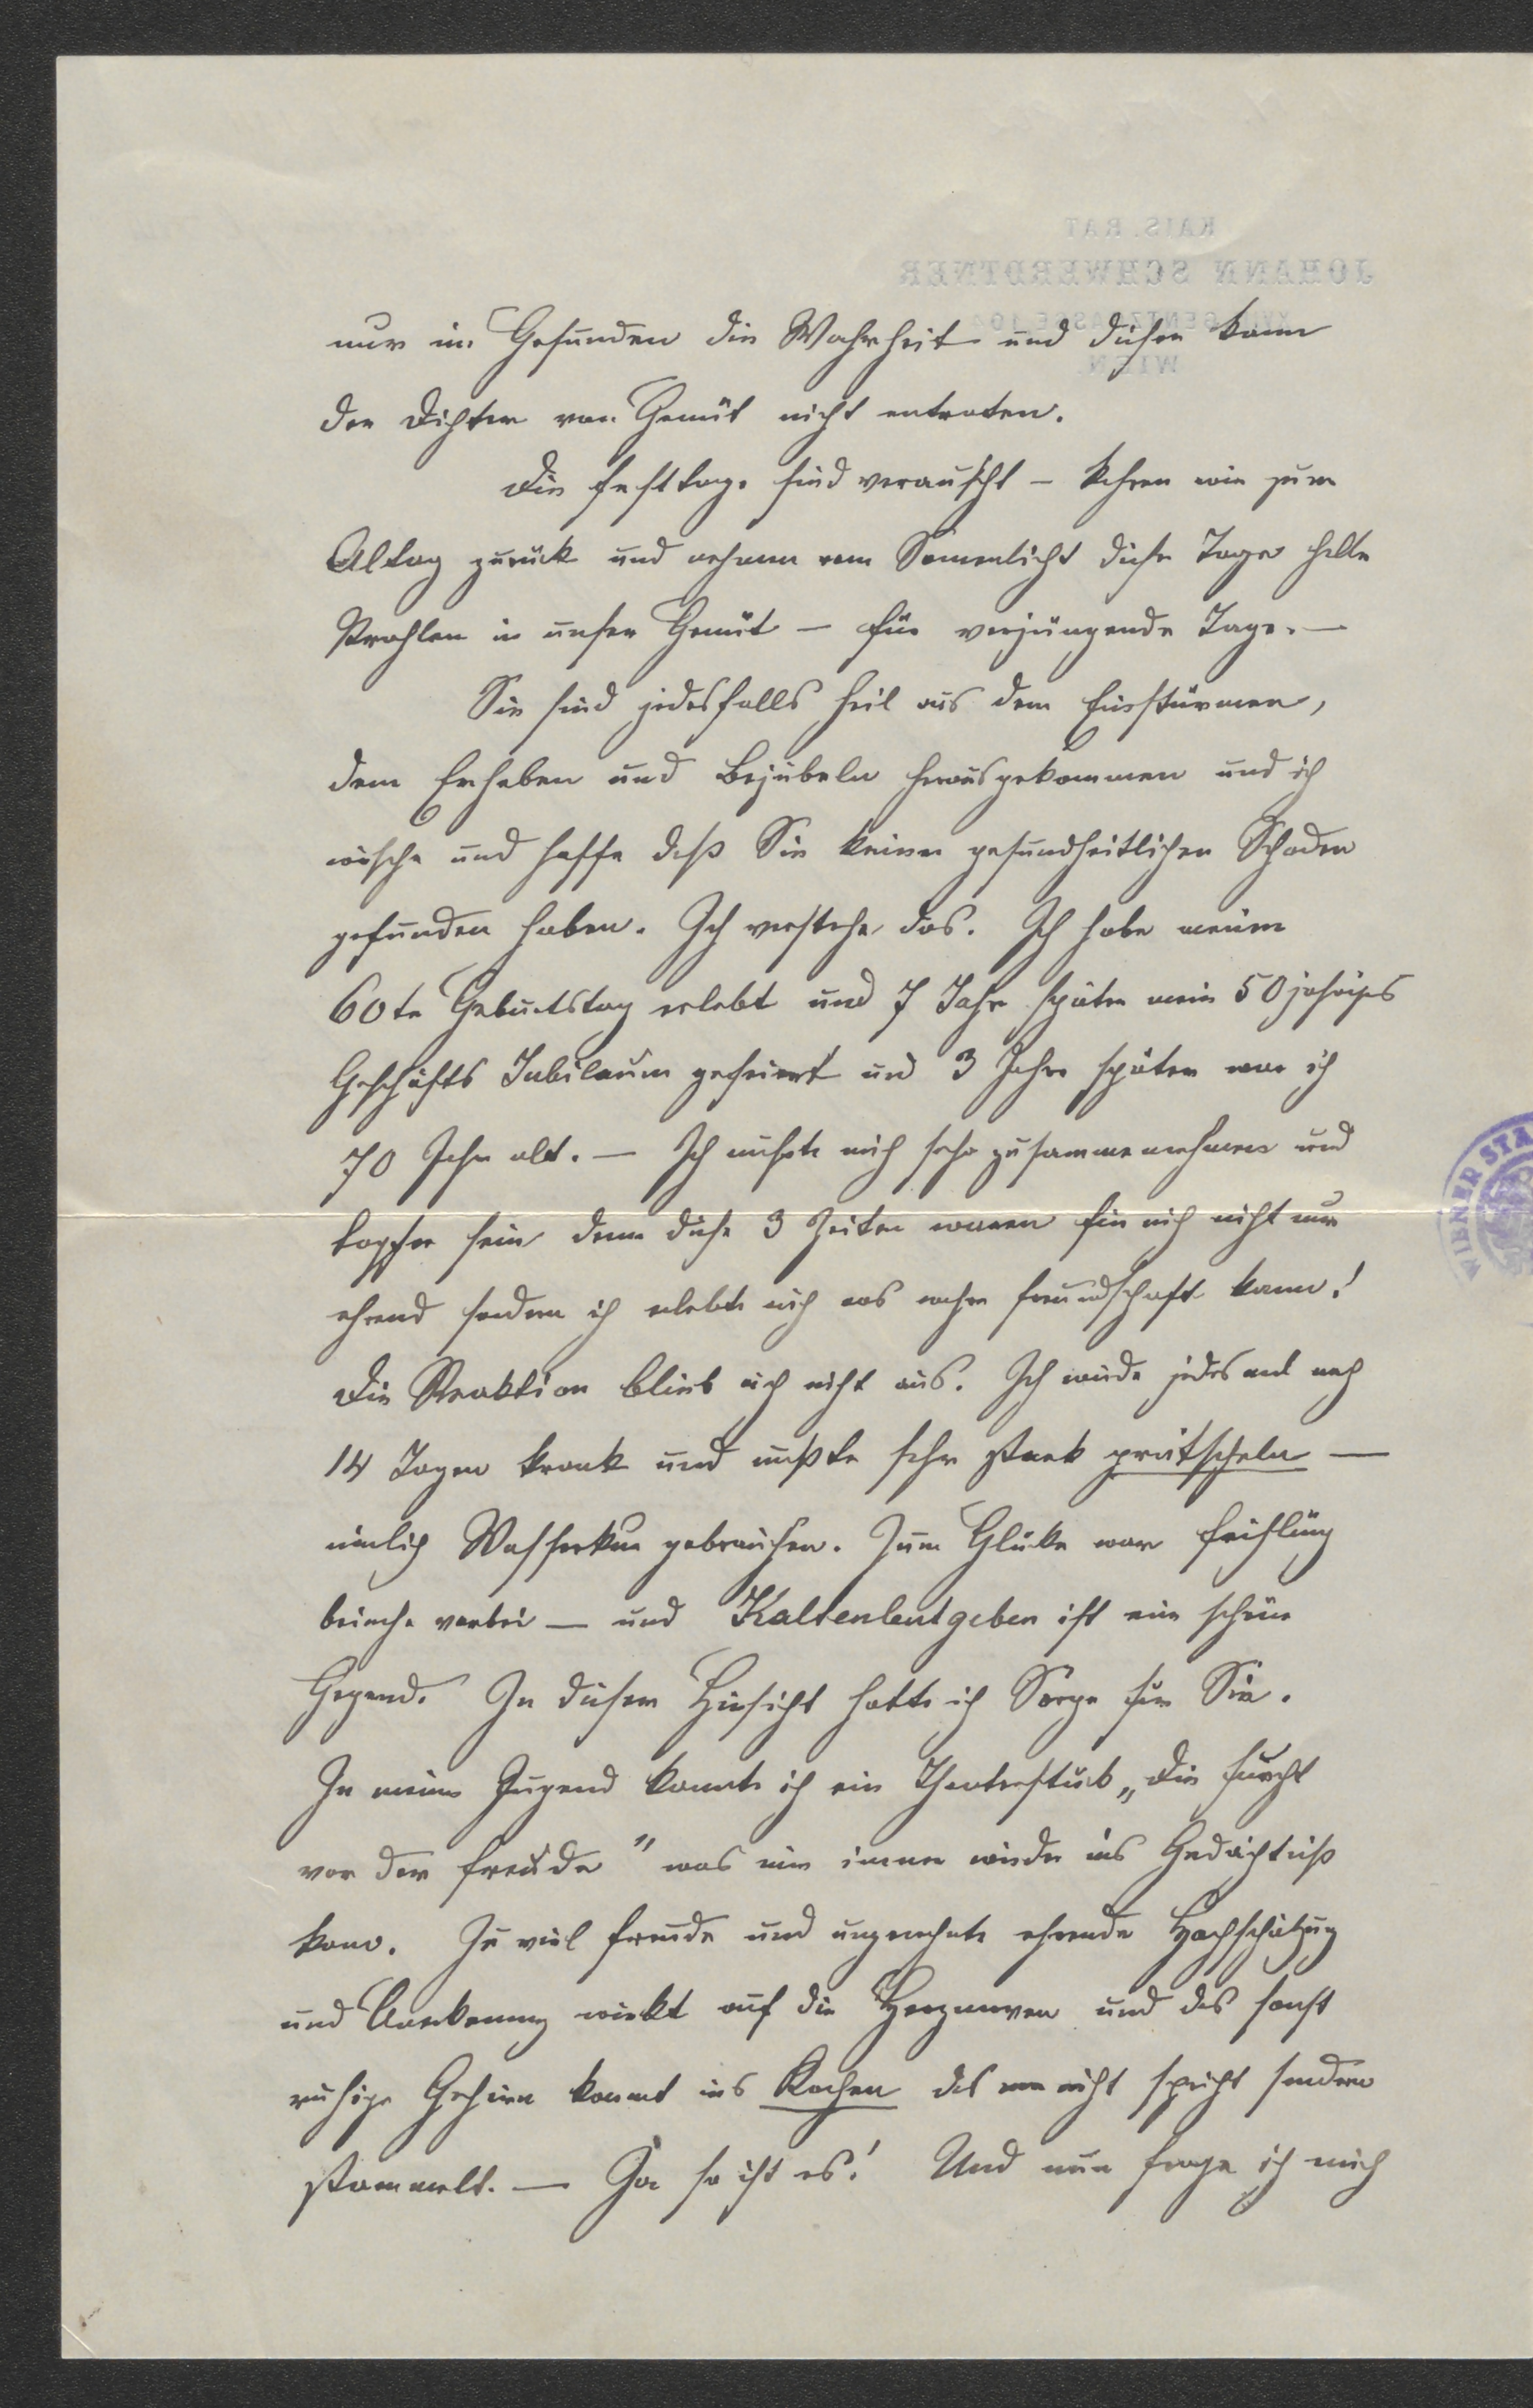 KAIS. RAT
JOHANN SCHWERDTNER
WIEN
nur im Gesunden die Wahrheit und dieser kann
der Dichter von Gemüt nicht entraten.
Die Festtage sind verauscht – kehren wir zum
Altag zurück und nehmen vom Sonnenlicht dieser Tage helle
Strahlen in unser Gemüt – für verjüngende Tage. –
Sie sind jedesfalls heil aus dem Einstürmen,
dem Erheben und Bejubeln herausgekommen und ich
wüsche und hoffe daß Sie keinen gesundheitlichen Schaden
gefunden haben. Ich verstehe das. Ich habe meinen
60te Geburtstag erlebt und 7 Jahr später mein 50jähriges
Geschäfts Jubiläum gefeiert und 3 Jahre später war ich
70 Jahr alt. – Ich mußte mich sehr zusammennehmen und
tapfer sein denn diese 3 Zeiten waren für mich nicht nur
ehrend sondern ich erlebte auch was wahre Freundschaft kann!
Die Reaktion blieb auch nicht aus. Ich wurde jedesmal nach
14 Tagen krank und mußte sehr stark pritscheln –
nämlich Wasserkur gebrauchen. Zum Glücke war Frühling
beinahe vorbei – und Kaltenleutgeben ist eine schöne
Gegend. In dieser Hinsicht hatte ich Sorge für Sie.
In meiner Jugend kannte ich ein Theaterstück „Die Furcht
vor der Freude" was mir immer wieder ins Gedächtniß
kam. Zu viel Freude und ungeahnte ehrende Hochschätzung
und Anerkennung wirkt auf die Herznerven und das sonst
ruhige Gehirn kommt ins Kochen das man nicht spricht sondern
stammelt. – Ja so ist es! Und nun frage ich mich
WIENER STA